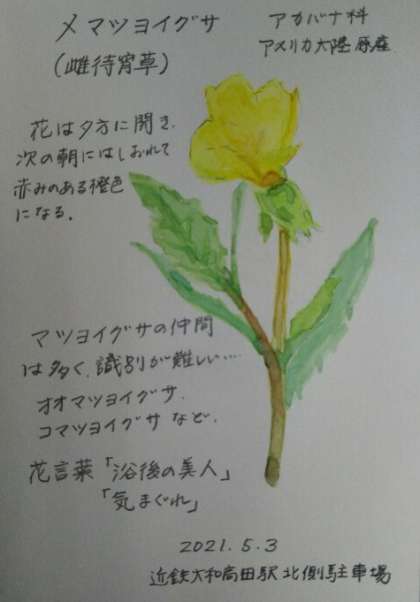 メマツヨイグサ
(雌待宵草)
アカバナ科
アメリカ大陸原産
花は夕方に開き、
次の朝にはしおれて
赤みのある橙色
になる。
マツヨイグサの仲間
は多く、識別が難しい…
オオマツヨイグサ、
コマツヨイグサなど、
花言葉「浴後の美人」
「気まぐれ」
2021.5.3
近鉄大和高田駅北側駐車場